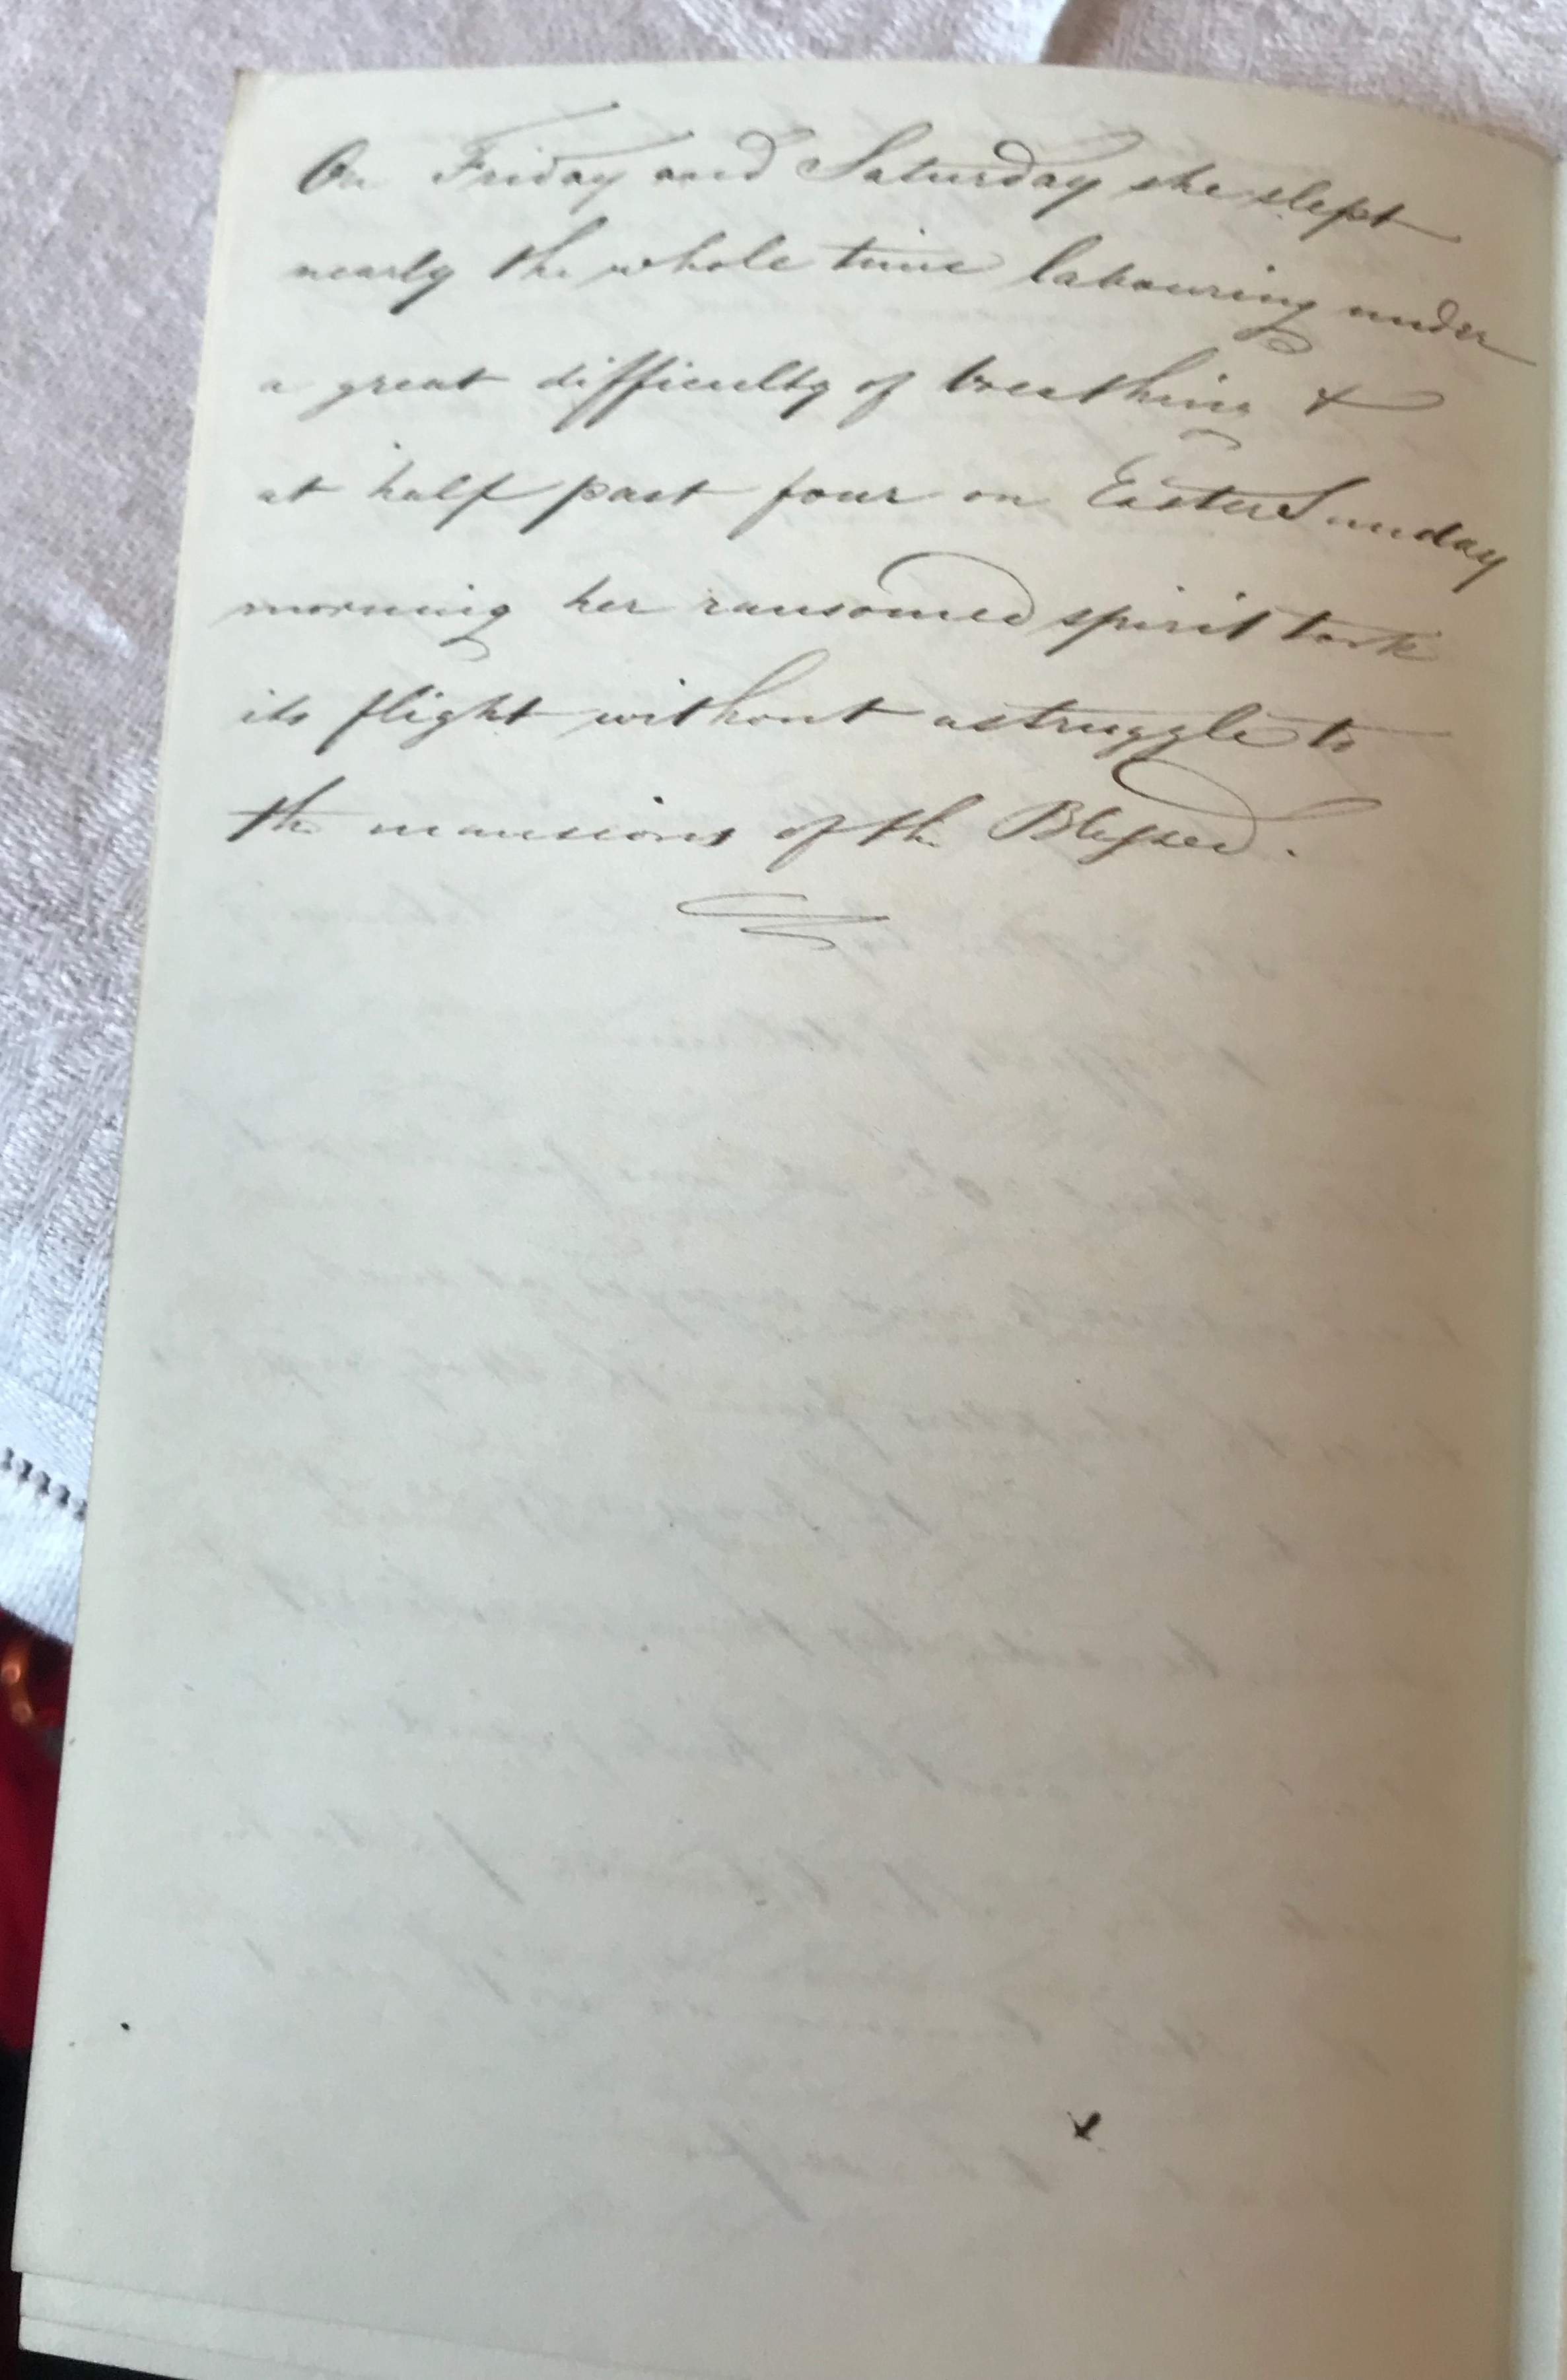 On Friday and Saturday she slept
nearly the whole time labouring under
a great difficulty of breathing &
at half past four on Easter Sunday
morning her ransomed spirit took
its flight without a struggle to
the mansions of the Blessed.